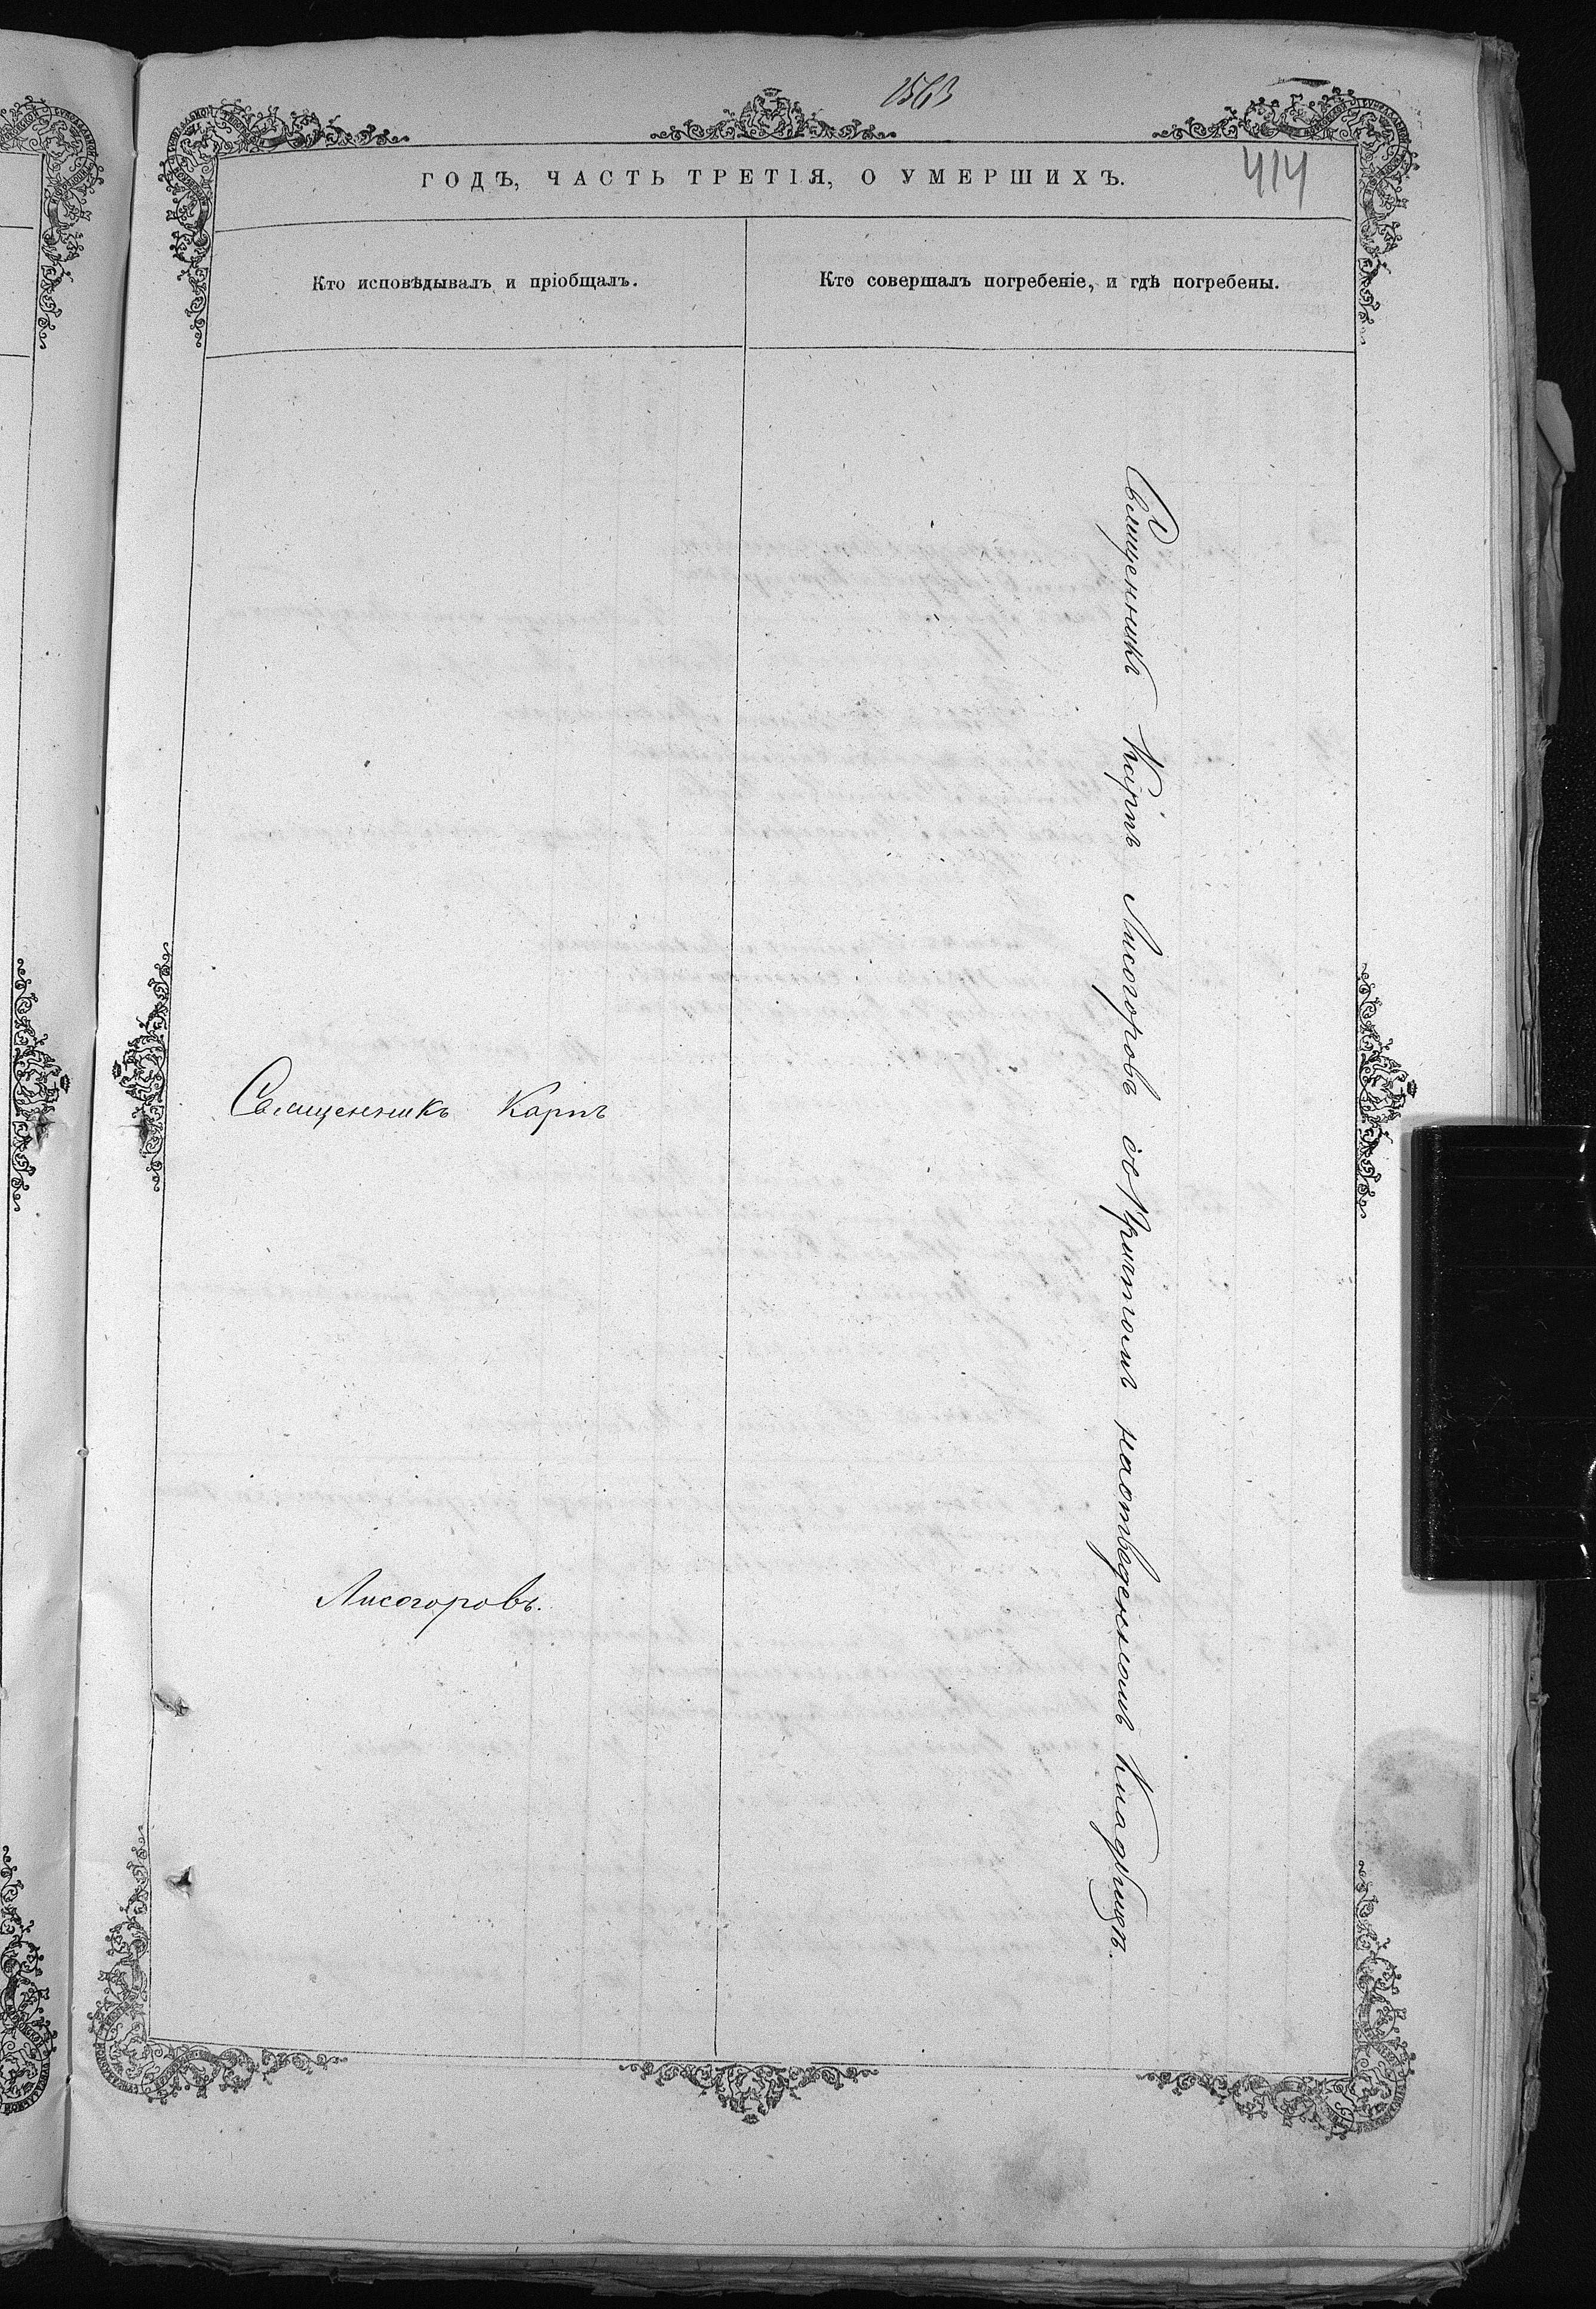 1563
414
ГОДЪ, ЧАСТЬ ТРЕТІЯ, О УМЕРШИХЪ.
Кто исповѣдывалъ и пріобщалъ.
Кто совершалъ погребеніе, и гдѣ погребены.
Священникъ Карпъ
Лисогоровъ.
Священникъ Карпъ Лисогоровъ съ Причтомъ на отведенномъ Кладбищѣ.